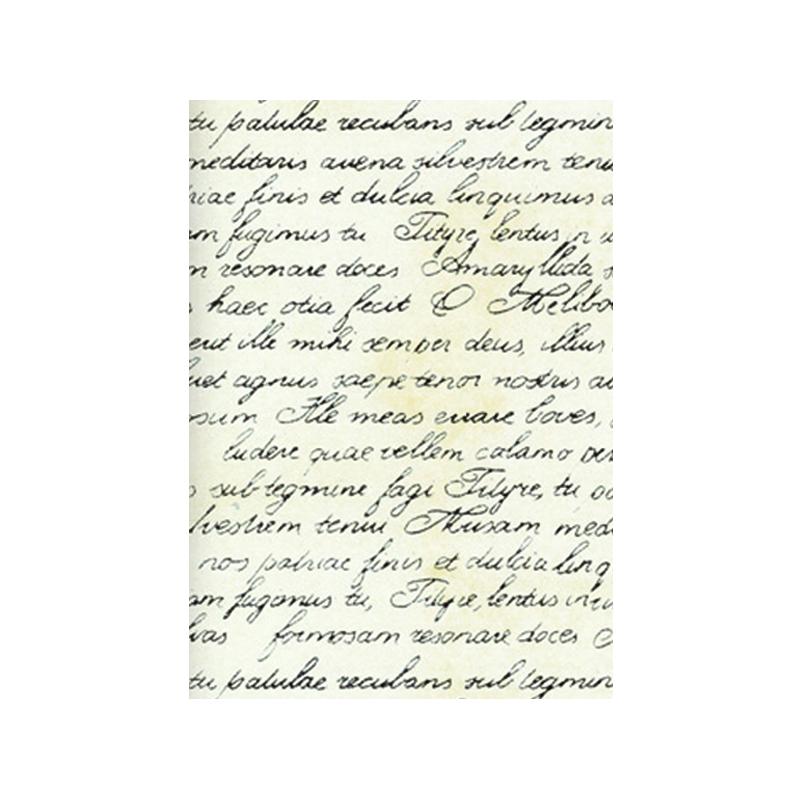 tu patulae recubans sub tegmin
meditaris avena silvestrem tenu
riae finis et dulcia linquimus a
m fugimus tu Tityre, lentus in u
n resonare doces Amaryllida s
haec otia fecit O Melibo
erit ille mihi semper deus, illius
uet agnus saepe tenor nostris au
sum Ille meas errare boves,
ludere quae vellem calamo
sub tegmine fagi Tityre, tu
lvestrem tenui Musam medi
nos patriae finis et dulcia linq
am fugomus tu, Tityre, lentus in
lvas formosam resonare doces
tu patulae recubans sub tegmin